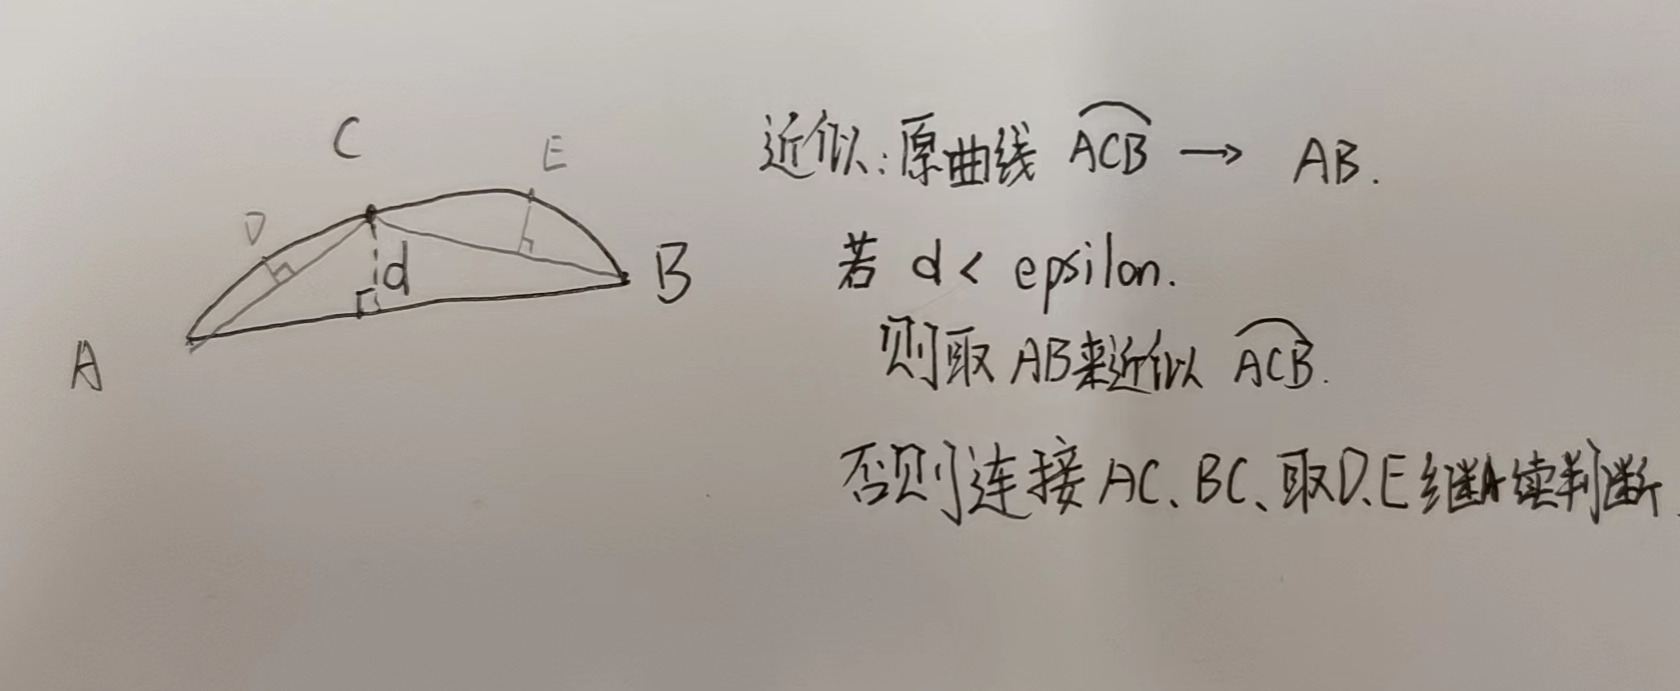 C
E
D
d
B
A
近似:原曲线 ACB → AB.
若 d < epsilon.
则取 AB来近似 ACB.
否则连接 AC、BC、取D、E继续判断.